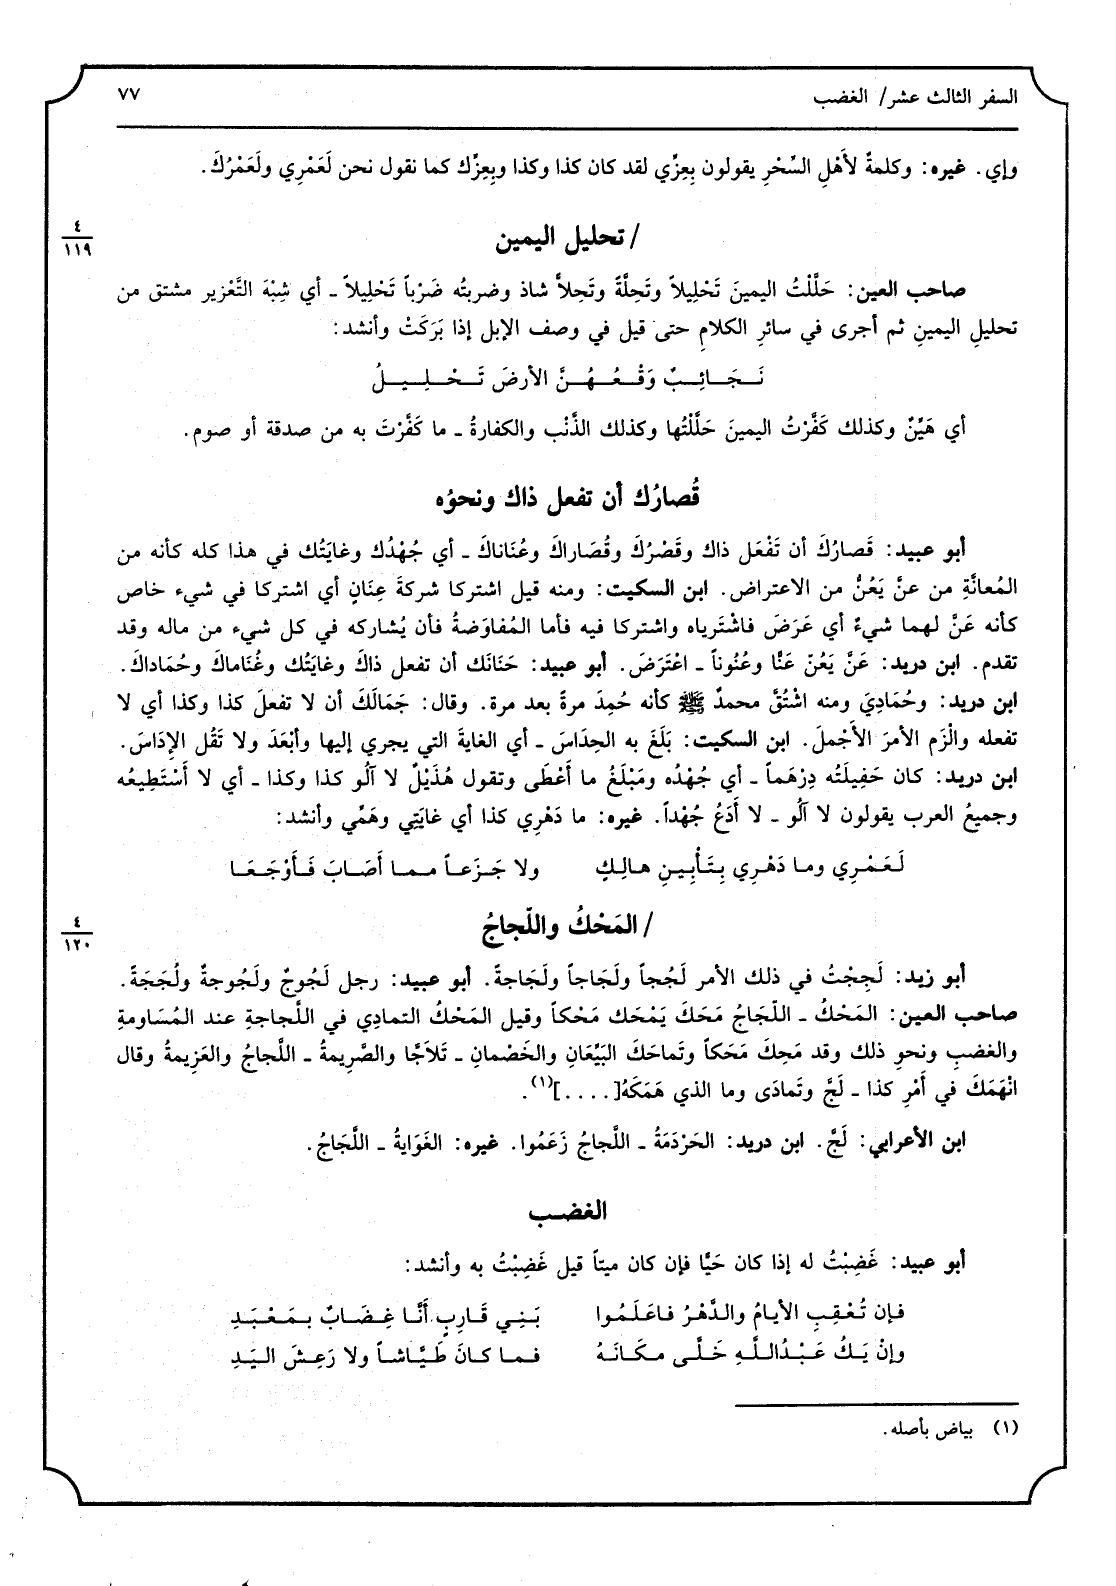 السفر الثالث عشر/ الغضب
٧٧
وإي. غيره: وكلمةٌ لأَهْلِ السِّحْرِ يقولون بِعِزِّي لقد كان كذا وكذا وبِعِزِّك كما نقول نحن لَعَمْرِي ولَعَمْرُكَ.
٤
١١٩
/ تحليل اليمين
صاحب العين: حَلَّلْتُ اليمينَ تَحْلِيلاً وتَحِلَّةً وتَحِلاًّ شاذ وضربتُه ضَرْباً تَحْلِيلاً ـ أي شِبْهَ التَّعْزير مشتق من
تحليلِ اليمينِ ثم أجرى في سائرِ الكلامِ حتى قيل في وصف الإبل إذا بَرَكَتْ وأنشد:
نَجَائِبٌ وَقْعُهُنَّ الأرضَ تَحْلِيلُ
أي هَيِّنٌ وكذلك كَفَّرْتُ اليمينَ حَلَّلْتُها وكذلك الذَّنْب والكفارةُ ـ ما كَفَّرْتَ به من صدقة أو صوم.
قُصارُك أن تفعل ذاك ونحوُه
أبو عبيد: قَصارُكَ أن تَفْعَل ذاك وقَصْرُكَ وقُصَاراكَ وعُنَاناكَ ـ أي جُهْدُك وغايَتُك في هذا كله كأنه من
المُعانَّةِ من عنَّ يَعُنُّ من الاعتراض. ابن السكيت: ومنه قيل اشتركا شركةَ عِنَانٍ أي اشتركا في شيء خاص
كأنه عَنَّ لهما شيءٌ أي عَرَضَ فاشْتَرياه واشتركا فيه فأما المُفاوَضةُ فأن يُشاركه في كل شيء من ماله وقد
تقدم. ابن دريد: عَنَّ يَعُنّ عَنًّا وعُنُوناً ـ اعْتَرَضَ. أبو عبيد: حَنَانَك أن تفعل ذاكَ وغايَتُك وغُناماكَ وحُمَاداكَ.
ابن دريد: وحُمَادِيَ ومنه اشْتُقَّ محمدٌ ﷺ كأنه حُمِدَ مرةً بعد مرة. وقال: جَمَالَكَ أن لا تفعلَ كذا وكذا أي لا
تفعله والْزَم الأمرَ الأَجْملَ. ابن السكيت: بَلَغَ به الحِدَاسَ ـ أي الغايةَ التي يجري إليها وأبْعَدَ ولا تَقُل الإدَاسَ.
ابن دريد: كان حَفِيلَتُه دِرْهَماً ـ أي جُهْدُه ومَبْلَغُ ما أَعْطَى وتقول هُذَيْلٌ لا آلُو كذا وكذا ـ أي لا أَسْتَطِيعُه
وجميعُ العرب يقولون لا آلُو ـ لا أَدَعُ جُهْداً. غيره: ما دَهْرِي كذا أي غايَتِي وهَمِّي وأنشد:
لَعَمْرِي وما دَهْرِي بِتَأْبِينِ هالِكٍ ولا جَزَعاً مما أَصَابَ فَأَوْجَعَا
٤
١٢٠
/ المَحْكُ واللّجاجُ
أبو زيد: لَجِجْتُ في ذلك الأمر لَجُجاً ولَجَاجاً ولَجَاجةً. أبو عبيد: رجل لَجُوجٌ ولَجُوجةٌ ولُجَجَةً.
صاحب العين: المَحْكُ ـ اللّجَاجُ مَحَكَ يَمْحَك مَحْكاً وقيل المَحْكُ التمادي في اللَّجاجةِ عند المُسَاومةِ
والغضبِ ونحوِ ذلك وقد مَحِكَ مَحَكاً وتَماحَكَ البَيِّعَانِ والخَصْمانِ ـ تَلاَجَّا والصَّرِيمةُ ـ اللَّجاجُ والعَزِيمةُ وقال
انْهَمَكَ في أَمْرِ كذا ـ لَجَّ وتَمادَى وما الذي هَمَكَهُ[....](١).
ابن الأعرابي: لَجَّ. ابن دريد: الحَرْدَمَةُ ـ اللَّجاجُ زَعَمُوا. غيره: الغَوَايةُ ـ اللَّجَاجُ.
الغضب
أبو عبيد: غَضِبْتُ له إذا كان حَيًّا فإن كان ميتاً قيل غَضِبْتُ به وأنشد:
فإن تُعْقِبِ الأيامُ والدَّهْرُ فاعَلَمُوا بَنِي قَارِبٍ أنَّا غِضَابٌ بمَعْبَدِ
وإنْ يَكُ عَبْدُاللَّهِ خَلَّى مكَانَهُ فما كانَ طَيَّاشاً ولا رَعِشَ اليَدِ
(١) بياض بأصله.